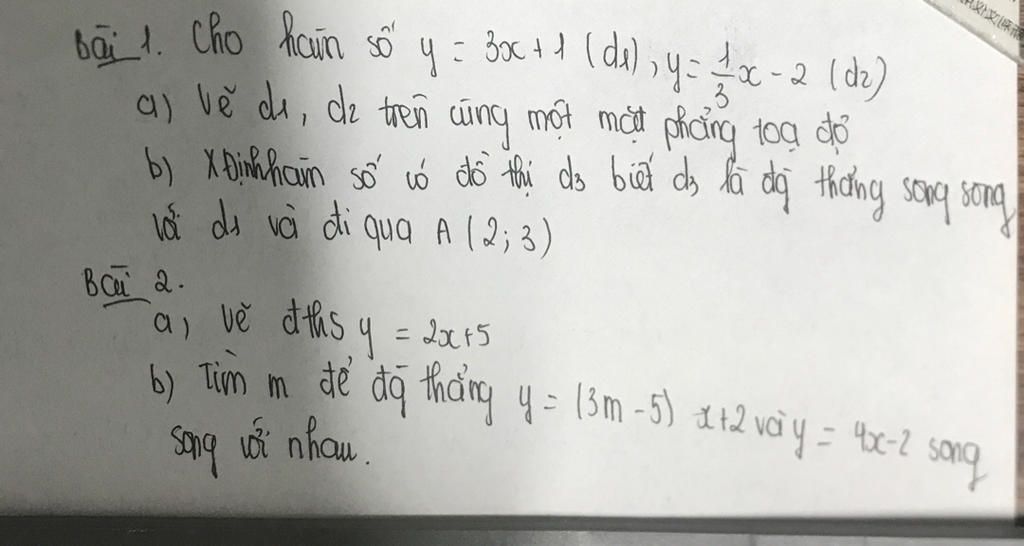 Bài 1. Cho hàm số y = 3x + 1 (d1), y = 1/3 x - 2 (d2)
a) Vẽ d1, d2 trên cùng một mặt phẳng toạ độ
b) XĐịnh hàm số có đồ thị d3 biết d3 là đg thẳng song song
với d1 và đi qua A (2; 3)
Bài 2.
a) Vẽ đths y = 2x+5
b) Tìm m để đg thẳng y = (3m - 5) x+2 và y = 4x-2 song
song với nhau.